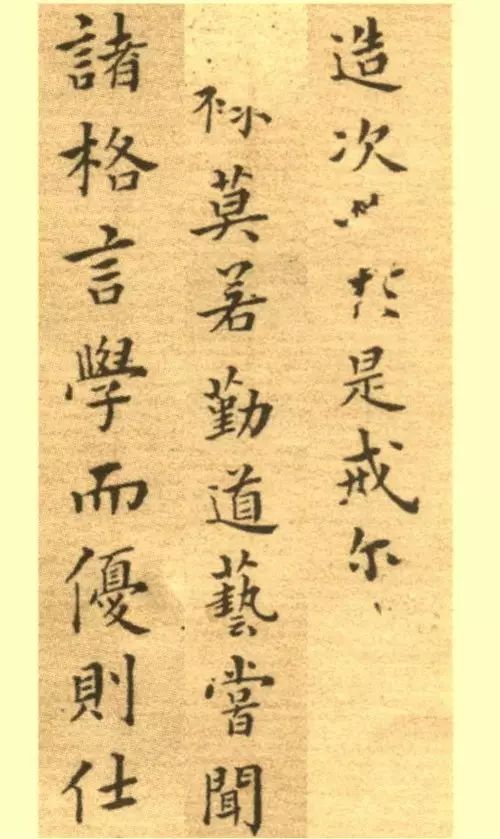 造次必於是戒尔
莫若勤道藝嘗聞
諸格言學而優則仕